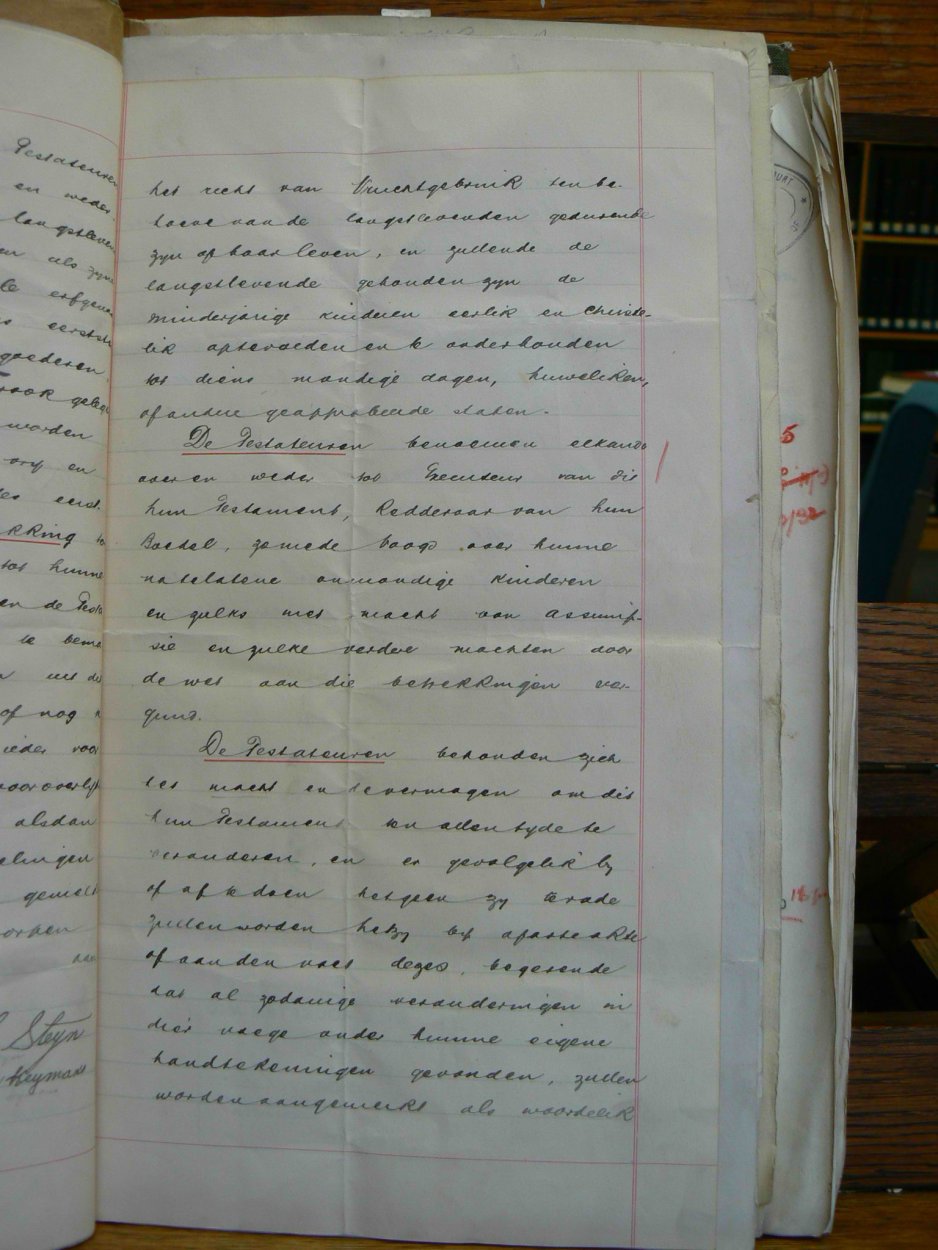 Testateuren
en weder
langstleven
en als zyn
le erfgena
s eerstst
goederen
rook geleg
worden
orf en
les eerst
kking to
tot hunne
en de Testa
te bemo
n uit de
of nog
ieder voor
vooroverly
alsdan
elingen
gemeld
orpen
aan
Steyn
Heymans
het recht van Vruchtgebruik ten be-
hoeve van de langstlevenden gedurende
zyn of haar leven, en zullende de
langstlevende gehouden zyn de
minderjarige kinderen eerlik en Christe-
lik optevoeden en te onderhouden
tot diens mondige dagen, huweliken,
of andere geapprobeerde staten.
De Testateuren benoemen elkander
over en weder tot Executeur van dit
hun Testament, Redderaar van hun
Boedel, zomede Voogd over hunne
natelatene onmondige kinderen
en zulks met macht van Assump-
sie en zulke verdere machten door
de wet aan die betrekkingen ver-
gund.
De Testateuren behouden zich
het macht en t vermogen om dit
hun Testament ten allen tyde te
veranderen, en er gevolgelik by
of af te doen hetgeen zy te rade
zullen worden hetzy by aparte akte
of aan den voet dezes, begerende
dat al zodanige veranderingen in
dier voege onder hunne eigene
handtekeningen gevonden, zullen
worden aangemerkt als woordelik